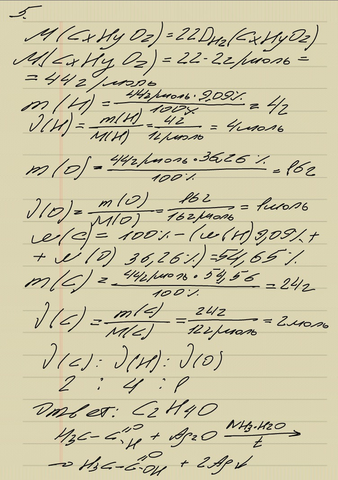 5.
M(CxHyOz)=22DH2(CxHyOz)
M(CxHyOz)=22·2г/моль=
=44г/моль
m(H)=44г/моль·9,09%/100%=4г
ν(H)=m(H)/M(H)=4г/1г/моль=4моль
m(O)=44г/моль·36,26%/100%=16г
ν(O)=m(O)/M(O)=16г/16г/моль=1моль
w(C)=100%-(w(H)9,09%+
+w(O) 36,26%)=54,65%
m(C)=44г/моль·54,56/100%=24г
ν(C)=m(C)/M(C)=24г/12г/моль=2моль
ν(C):ν(H):ν(O)
2 : 4 : 1
Ответ: C2H4O
H3C-C=O-H+Ag2O NH3·H2O t →
→H3C-C=O-OH+2Ag↓